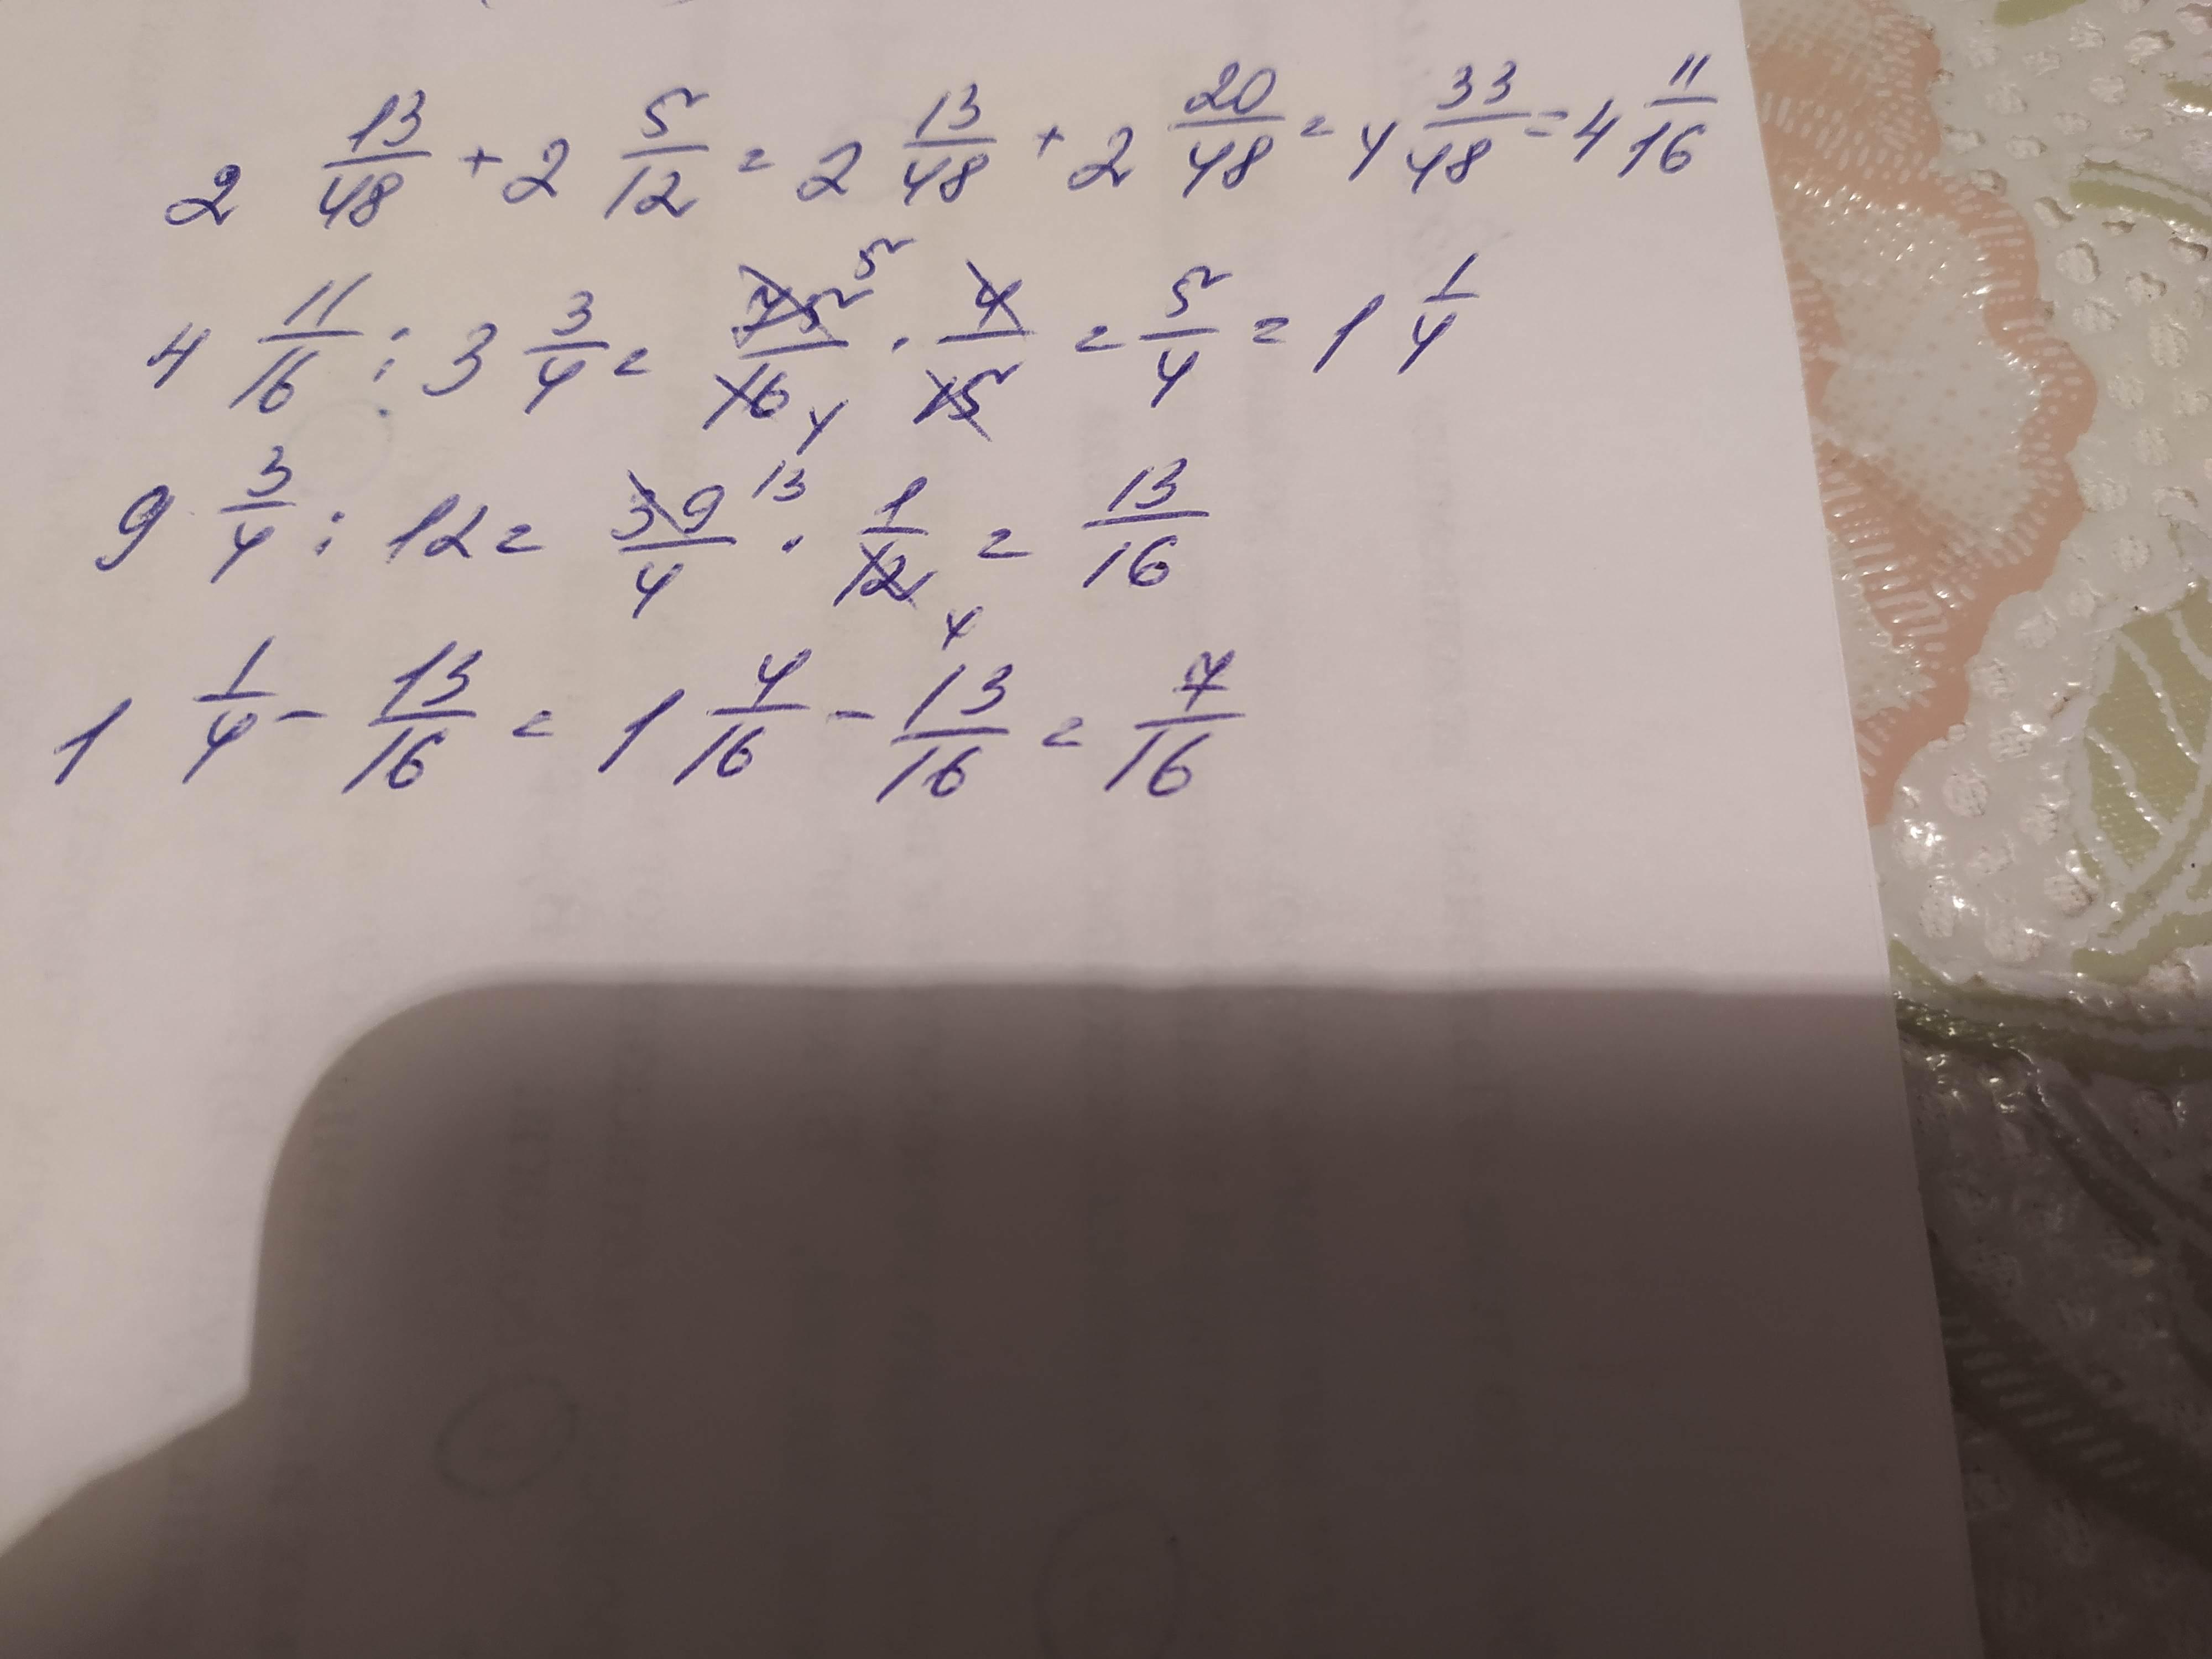 2 13/48 + 2 5/12 = 2 13/48 + 2 20/48 = 4 33/48 = 4 11/16
4 11/16 : 3 3/4 = 75 5/16 4 · 4/15 = 5/4 = 1 1/4
9 3/4 : 12 = 39 13/4 · 1/12 4 = 13/16
1 1/4 - 13/16 = 1 4/16 - 13/16 = 7/16